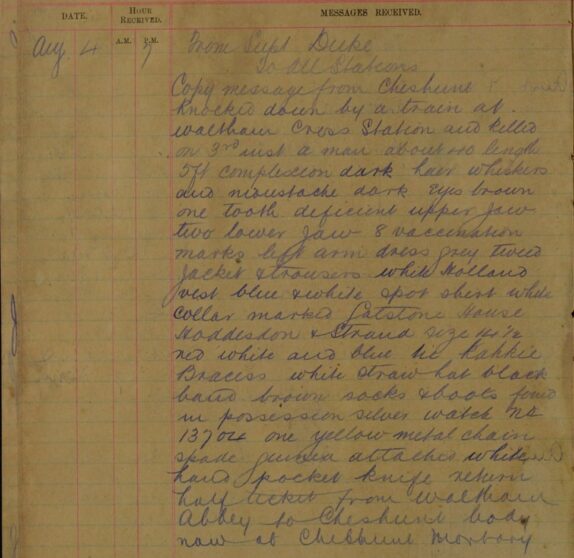 DATE.
HOUR RECEIVED.
MESSAGES RECEIVED.
A.M. P.M.
Aug 4 7 From Supt Duke
To All Stations
Copy message from Cheshunt
Knocked down by a train at
Waltham Cross Station and killed
on 3rd inst a man about 40 length
5ft complexion dark hair whiskers
and moustache dark eyes brown
one tooth deficient upper jaw
two lower jaw 8 vaccination
marks left arm dress grey tweed
jacket & trousers white Holland
vest blue & white spot shirt white
collar marked Gatstone House
Hoddesdon & Strand size
red white and blue tie Kahkie
Bracess white straw hat black
band brown socks & boots found
in possession silver watch No
13704 one yellow metal chain
spade guinea attached white
hand pocket knife return
half ticket from Waltham
Abbey to Cheshunt body
now at Cheshunt Mortary